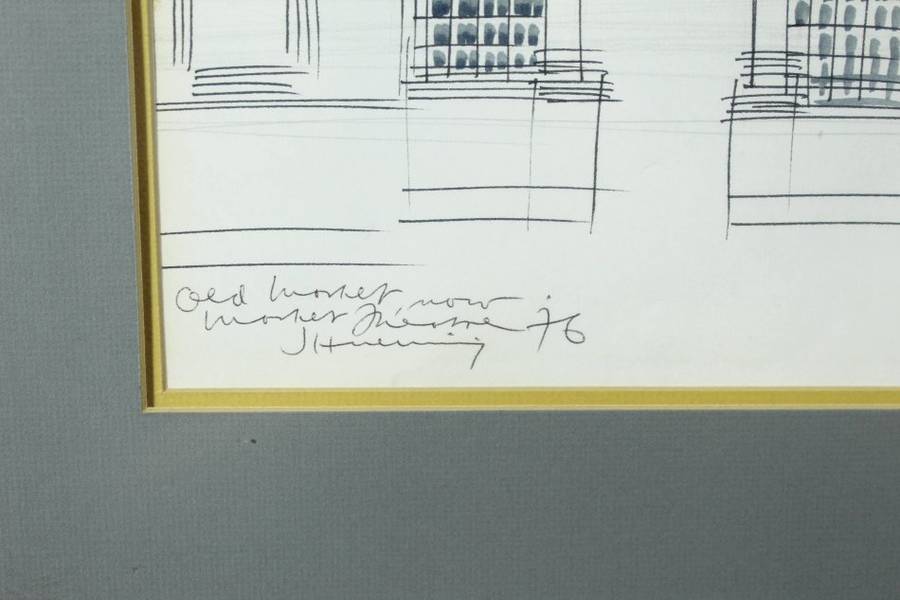 Old Market, now
Market Theatre '76